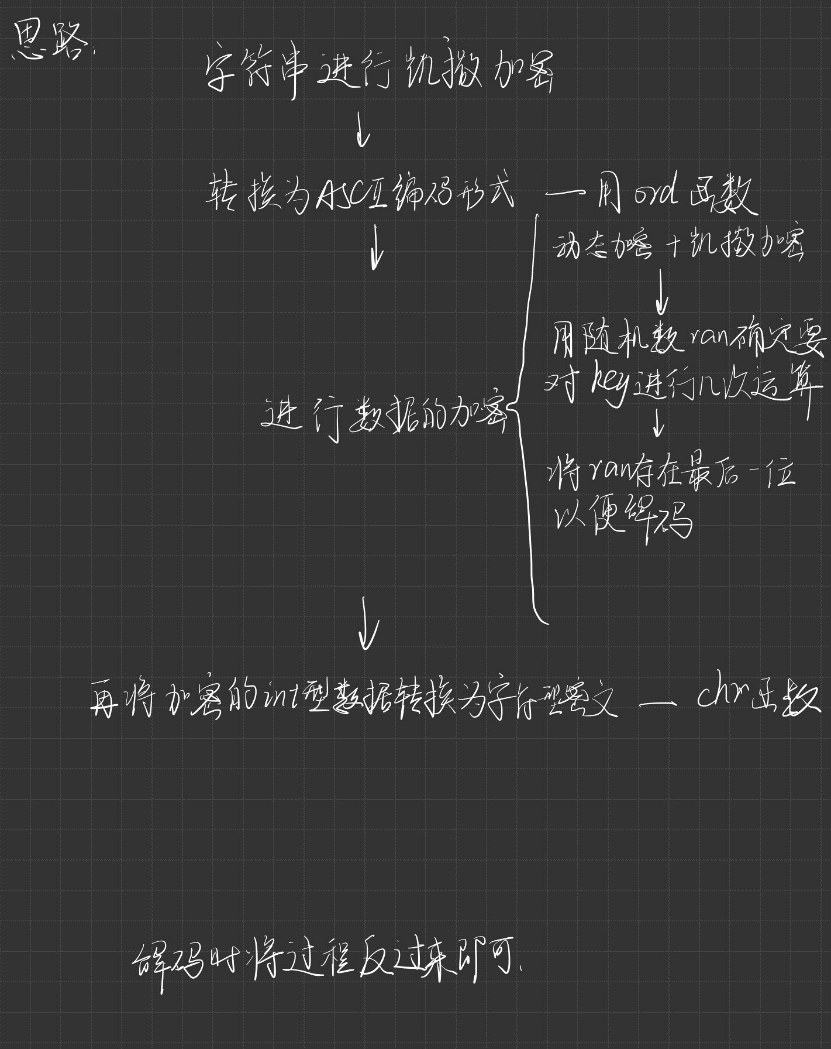 思路.
字符串进行凯撒加密
↓
转换为ASCⅡ编码形式 — 用ord函数
↓
动态加密+凯撒加密
↓
用随机数ran确定要
对key进行几次运算
进行数据的加密
↓
将ran存在最后一位
以便解码
↓
再将加密的int型数据转换为字符型密文 — chr函数
解码时将过程反过来即可.